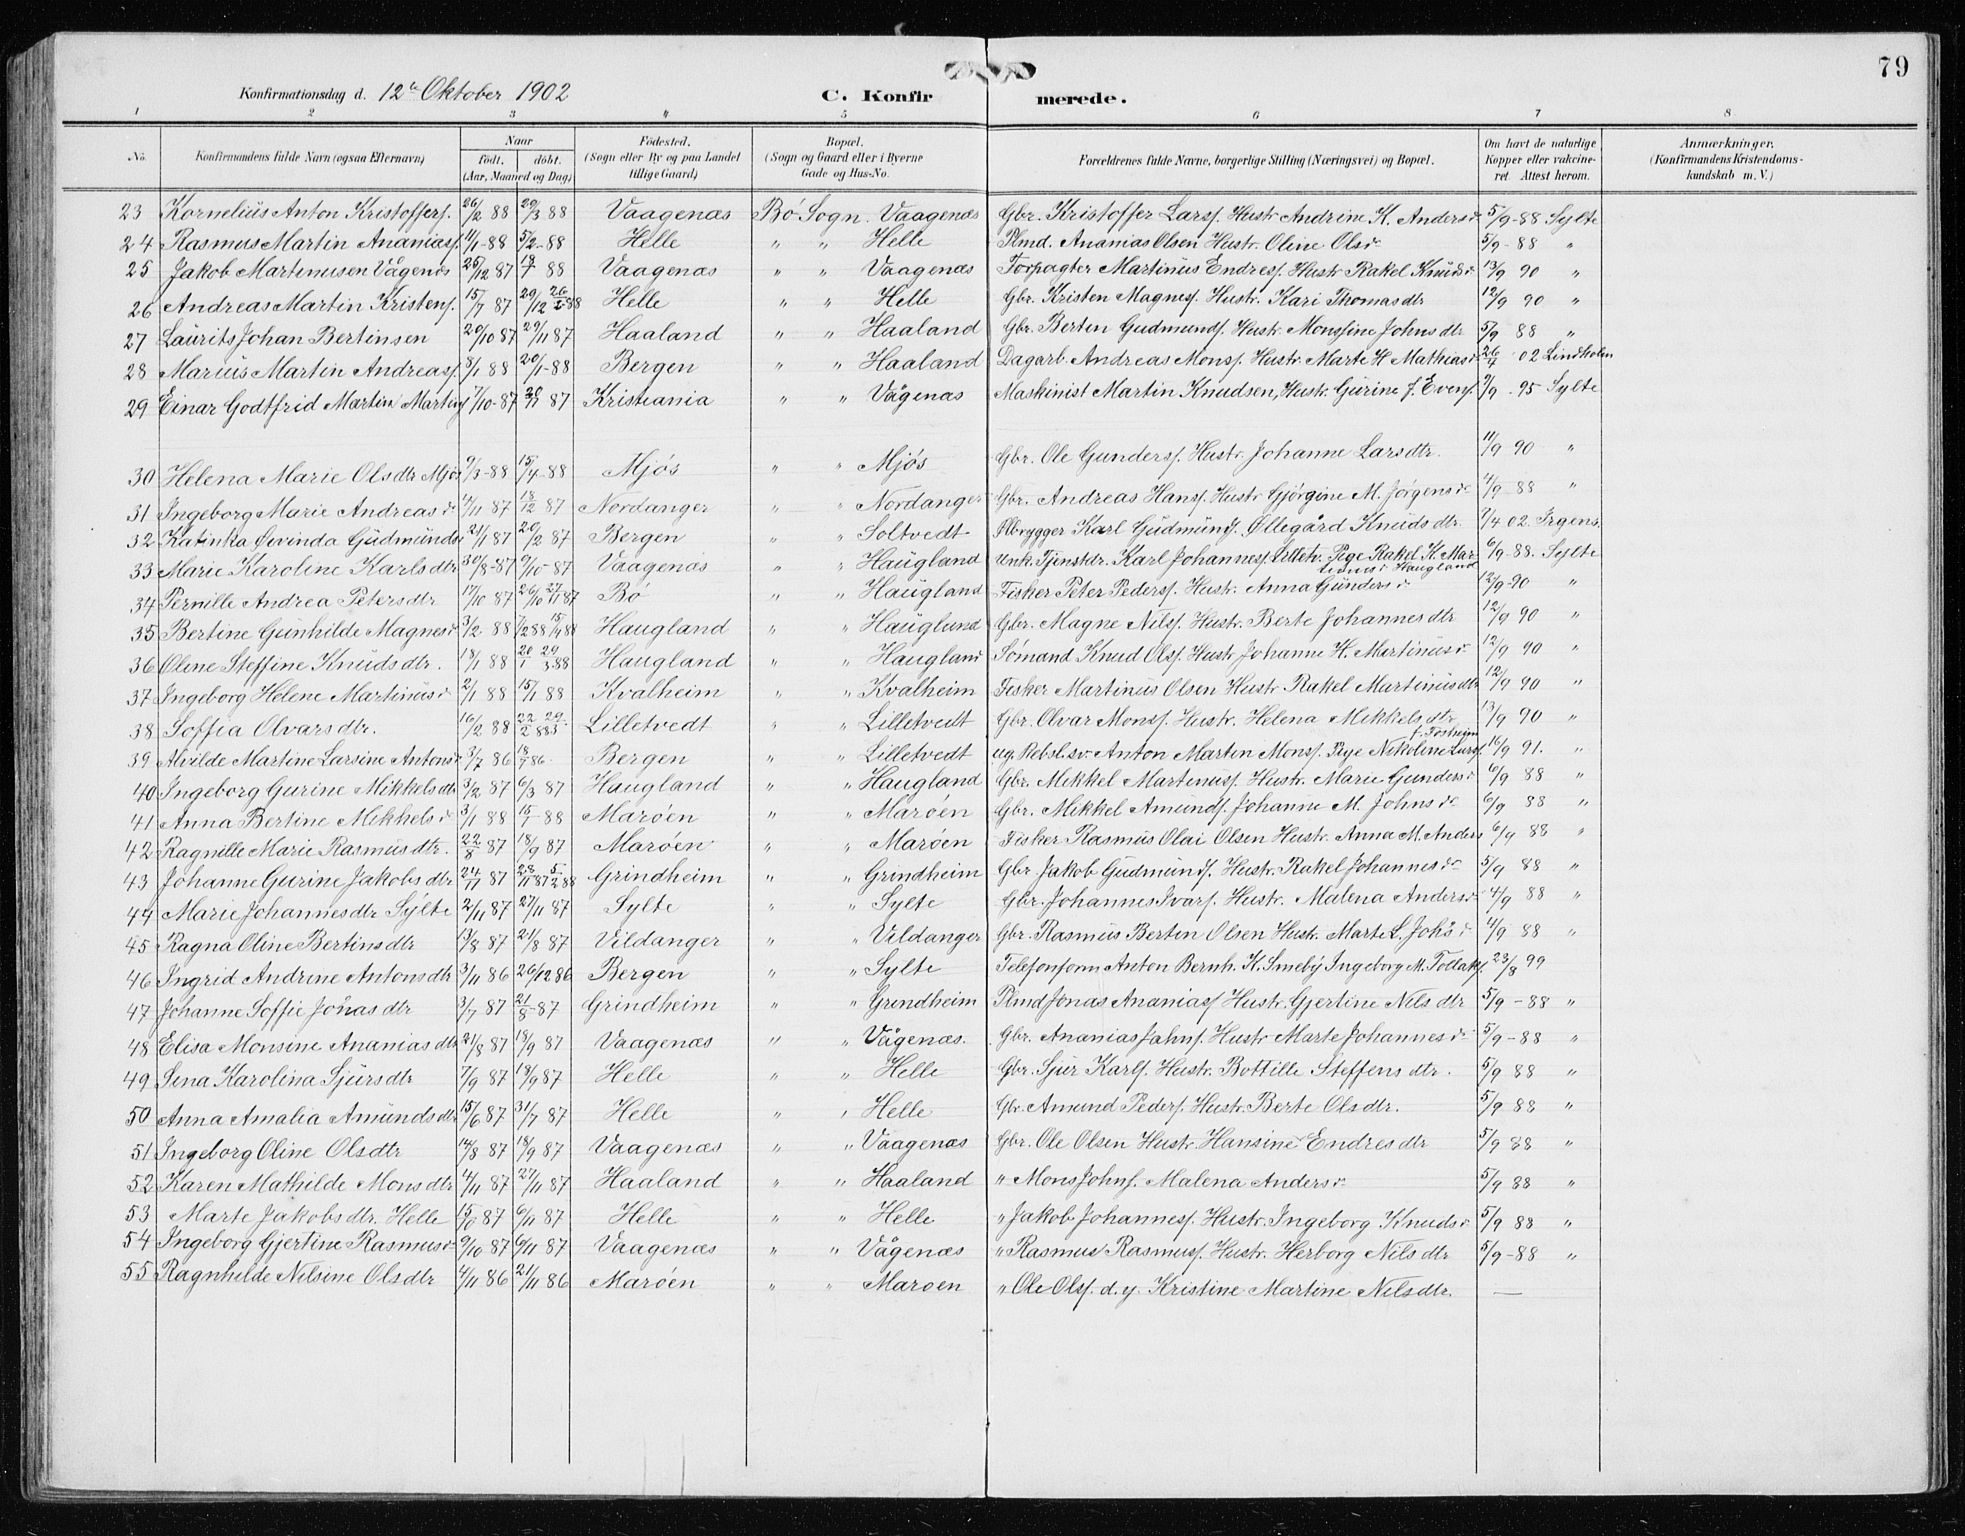 79
Konfirmationsdag d. 12te Oktober 1902 C. Konfirmerede.
1 2 3 4 5 6 7 8
No. Konfirmandens fulde Navn (ogsaa Efternavn) Naar født. døbt. (Aar, Maaned og Dag) Fødested. (Sogn eller By og paa Landet tillige Gaard) Bopæl. (Sogn og Gaard eller i Byerne Gade og Hus-No. Forældrenes fulde Navne, borgerlige Stilling (Næringsvei) og Bopæl. Om havt de naturlige Kopper eller vakcineret. Attest herom. Anmærkninger. (Konfirmandens Kristendomskundskab m. V.)
23 Kornelius Anton Kristoffers. 26/2 88 29/3 88 Vaagenæs Bø Sogn. Vaagenæs Gbr. Kristoffer Larss. Hustr Andrine K. Andersdr 5/9-88 Sylte
24 Rasmus Martin Ananiass. 11/1-88 5/2-88 Helle " " Helle Plmd. Ananias Olsen Hustr. Oline Olsdr 5/9-88 "
25 Jakob Martinusen Vågenæs 26/12 87 88 Vaagenæs " " Vaagenæs Forpagter Martinus Endress. Hustr Rakel Knudsdr 13/9 90 "
26 Andreas Martin Kristens. 15/7 87 29/12 26/2 88 Helle " " Helle Gbr. Kristen Magness. Hustr. Kari Thomasdtr 12/9 90 "
27 Laurits Johan Bertinsen 20/10 87 29/11 87 Haaland " " Haaland Gbr. Bertin Gudmunds. Hustr Monssine Johnsdtr 5/9 88 "
28 Marius Martin Andreass. 8/1 88 20/1-88 Bergen " " Haaland Dagarb. Andreas Monss. Hustr. Marte H. Mathiasdr 26/4 02 Lindholm
29 Einar Godtfrid Martin Martins 7/10-87 20/11 87 Kristiania " " Vågenæs Maskinist Martin Knudsen, Hustr. Gurine f. Evens. 9/9 95 Sylte
30 Helena Marie Olsdtr Mjøs 9/3-88 15/4-88 Mjøs " " Mjøs Gbr. Ole Gunderss. Hustr. Johanne Larsdtr. 11/9 90 "
31 Ingeborg Marie Andreasdr 14/11 87 18/12 87 Nordanger " " Nordanger Gbr. Andreas Hanss. Hustr Gjørgine M. Jørgensdr 4/9-88 "
32 Katinka Øvinda Gudmundsd 21/1 87 20/2 87 Bergen " " Soltvedt Ølbrygger Karl Gudmunds. Øllegård Knudsdtr. 7/4 02. Irgens.
33 Marie Karoline Karlsdtr 30/8-87 9/10-87 Vaagenæs " " Haugland Unk. Tjenstdr. Karl Johanness. Pige Rakel K. Martinusdr Haugland 6/9-88. Sylte
34 Pernille Andrea Petersdtr 17/10 87 26/10 27/11 87 Bø " " Haugland Fisker Peter Peders. Hustr. Anna Gundersdr 12/9-90 "
35 Bertine Gunhilde Magnesdr 3/2 88 7/2 88 15/4 88 Haugland " " Haugland Gbr. Magne Nilss. Hustr. Berte Johannesdtr 12/9 90 "
36 Oline Steffine Knudsdtr. 18/1 88 20/1 29/3 88 Haugland " " Haugland Sømand Knud Olss. Hustr Johanne H. Martinusdr 12/9 90 "
37 Ingeborg Helene Martinusdr 2/1 88 15/1 88 Kvalheim " " Kvalheim Fisker Martinus Olsen Hustr Rakel Martinusdtr 12/9 90 "
38 Soffia Olvarsdtr. 16/2 88 22/2 88 29/3 Lilletvedt " " Lilletvedt Gbr Olvar Monss. Hustr. Helena Mikkelsdtr 13/9 90 "
39 Alvilde Martine Larsine Antonsdr 3/7 86 18/7 86 Bergen " " Lilletvedt ug. Rebsl.sv. Anton Martin Monss. Pige Nikoline Larss. 16/9 91. "
40 Ingeborg Gurine Mikkelsdtr 3/2 87 6/3 87 Haugland " " Haugland Gbr. Mikkel Martinuss. Hustr. Marie Gundersdr 6/9 88 "
41 Anna Bertine Mikkelsdr 3/1 88 15/1 88 Marøen " " Marøen Gbr. Mikkel Amunds. Johanne M. Johnsdr 6/9 88 "
42 Ragnille Marie Rasmusdtr. 22/8 87 18/9 87 Marøen " " Marøen Fisker Rasmus Olai Olsen Hustr. Anna M. Anders 6/9 88 "
43 Johanne Gurine Jakobsdtr 24/11 87 28/11 87 5/2 88 Grindheim " " Grindheim Gbr Jakob Gudmunds. Hustr. Rakel Johannesdr 5/9 88 "
44 Marie Johannesdtr Sylte 2/11 87 27/11 87 Sylte " " Sylte Gbr. Johannes Ivars. Hustr. Malena Andersdr 4/9 88 "
45 Ragna Oline Bertinsdtr 13/8 87 21/8 87 Vildanger " " Vildanger Gbr. Rasmus Bertin Olsen Hustr. Marte L. Johsdr 4/9 88 "
46 Ingrid Andrine Antonsdtr 3/11 86 26/12 86 Bergen " " Sylte Telefonform Anton Bernh. K. Smeby Ingeborg M. Tollaks. 23/8 99
47 Johanne Soffie Jonasdtr 3/7 87 21/8-87 Grindheim " " Grindheim Plmd Jonas Ananiass. Hustr. Gjertine Nilsdtr 5/9-88 "
48 Elisa Monsine Ananiasdtr 21/8 87 18/9 87 Vaagenæs " " Vågenæs. Gbr. Ananias Jahns. Hustr Marte Johannesdr 5/9-88 "
49 Sena Karolina Sjursdtr 7/9 87 18/9 87 Helle " " Helle Gbr. Sjur Karls. Hustr. Bottille Steffensdtr. 5/9 88 "
50 Anna Amalia Amundsdtr 15/6 87 31/7 87 Helle " " Helle Gbr. Amund Peders. Hustr. Berte Olsdtr. 5/9 88 "
51 Ingeborg Oline Olsdtr 14/8 87 18/9 87 Vaagenæs " " Vaagenæs Gbr. Ole Olsen Hustr. Hansine Endresdtr 5/9 88 "
52 Karen Mathilde Monsdtr 4/11 87 27/11 87 Haaland " " Haaland " Mons Johns. Malena Andersdr 5/9 88 "
53 Marte Jakobsdtr. Helle 87 6/11 87 Helle " " Helle " Jakob Johanness. Hustr. Ingeborg Knudsdr 5/9 88 "
54 Ingeborg Gjertine Rasmusdr 9/10 87 6/11 87 Vaagenæs " " Vågenæs " Rasmus Rasmuss. Hustr. Herborg Nilsdtr 5/9-88 "
55 Ragnhilde Nilsine Olsdtr 4/11 86 21/11 86 Marøen " " Marøen " Ole Olss. d. y. Kristine Martine Nilsdtr. —